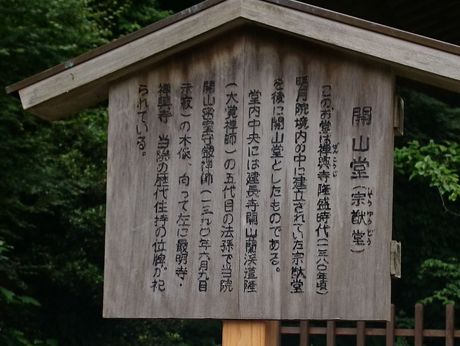 開山堂（宗猷堂）
そうゆうどう
このお堂は禅興寺隆盛時代（一三八〇年頃）
ぜんこうじ
明月院境内の中に建立されていた宗猷堂
を後に開山堂としたものである。
堂内中央には建長寺開山蘭渓道隆
（大覚禅師）の五代目の法孫で当院
開山密室守厳禅師（一三九〇年六月九日
示寂）の木像、向って左に最明寺・
禅興寺・当院の歴代住持の位牌が祀
られている。